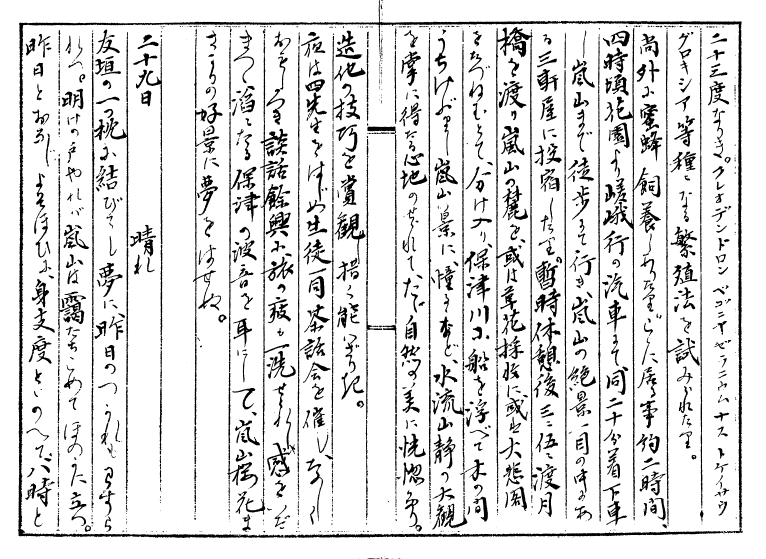 二十三度なりき。クレオデンドロン ベゴニヤ ゼラニウム ナス トケイサウ
グロキシア等種々なる繁殖法を試みられたり。
尚外に蜜蜂飼養しありたり。こゝに居る事約二時間、
四時頃花園より嵯峨行の汽車にて同二十分着下車
し嵐山まで徒歩にて行き、嵐山の絶景一目の中にあ
る三軒屋に投宿したり。暫時休憩後三々伍々渡月
橋を渡り嵐山の麓を或は草花採收に或は大悲閣
をたづねむとて、分け入り、保津川に船を浮べて木の間
うちけぶりし嵐山の景に憧るなど、水流山静の大観
を掌に得たる心地のせられて、たゞ自然の美に恍惚たり。
造化の技巧を賞観措く能はざりき。
夜は四先生をはじめ生徒一同茶話会を催し、
談話餘興に旅の疲も一洗せられし感をいだ
きつゝ滔々たる保津の波音を耳にして、嵐山桜花ま
さかりの好景に夢をはすぬ。
二十九日 晴れ
友垣の一つ枕に結びてし夢に昨日のつかれも
れつ。明けの戸やれば嵐山は靄たちこめてほのかに立つ。
昨日とおなじよそほひに身支度とゝのへて八時と